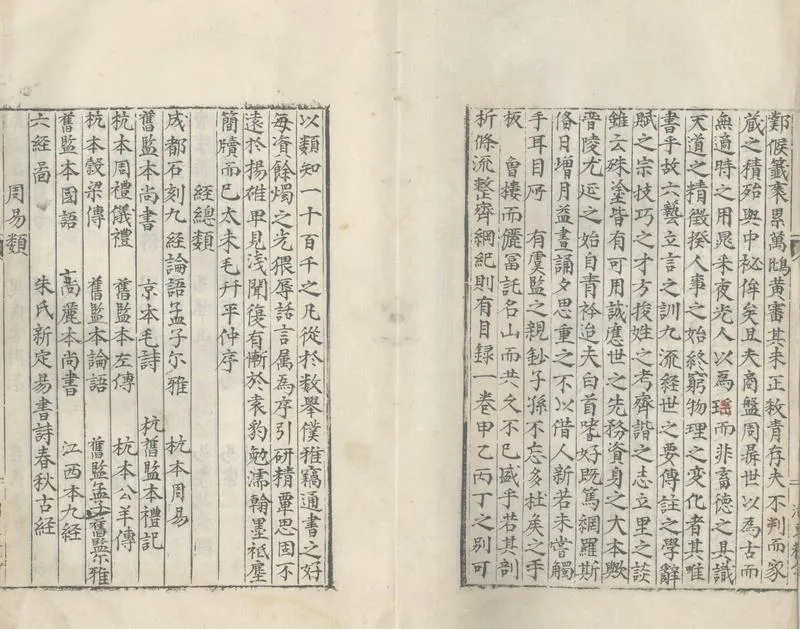 鄴侯籖袠累萬雌黃審其未正殺青存夫不刋而家
藏之積殆與中秘侔矣且夫商盤周鼎世以為古而
無適時之用晁采夜光人以為瑰而非畜徳之具識
天道之精徵揆人事之始終窮物理之變化者其唯
書乎故六藝立言之訓九流經世之要傳註之學辭
賦之宗技巧之才方技姓之考齊諧之志立里之談
雖云殊塗皆有可用誠應世之先務資身之大本歟
晉陵尤延之始自青衿迨夫白首嗜好旣篤網羅斯
俻日增月益晝誦夕思重之不以借人新若未甞觸
手耳目所　有虞監之親鈔子孫不忘多杜矦之手
板　㑹稡而儷冨託名山而共久不已盛乎若其剖
析條流整齊綱紀則有目録一卷甲乙丙丁之别可
以類知一十百千之凡從扵數舉僕雅竊通書之好
每資餘燭之光猥辱話言属為序引研精覃思固不
遠扵揚雄卑見淺聞復有慚扵袁豹勉濡翰墨袛塵
簡牘而已太末毛幵平仲序
經緫類
成都石刻九經論語孟子尔雅　杭本周易
舊監本尚書　京本毛詩　杭舊監本禮記
杭本周禮儀禮　舊監本左傳　杭本公羊傳
杭本穀梁傳　舊監本論語　舊監孟子　舊監爾雅
舊監本國語　髙麗本尚書　江西本九經
六經圖　朱氏新定易書詩春秋古經
周易類